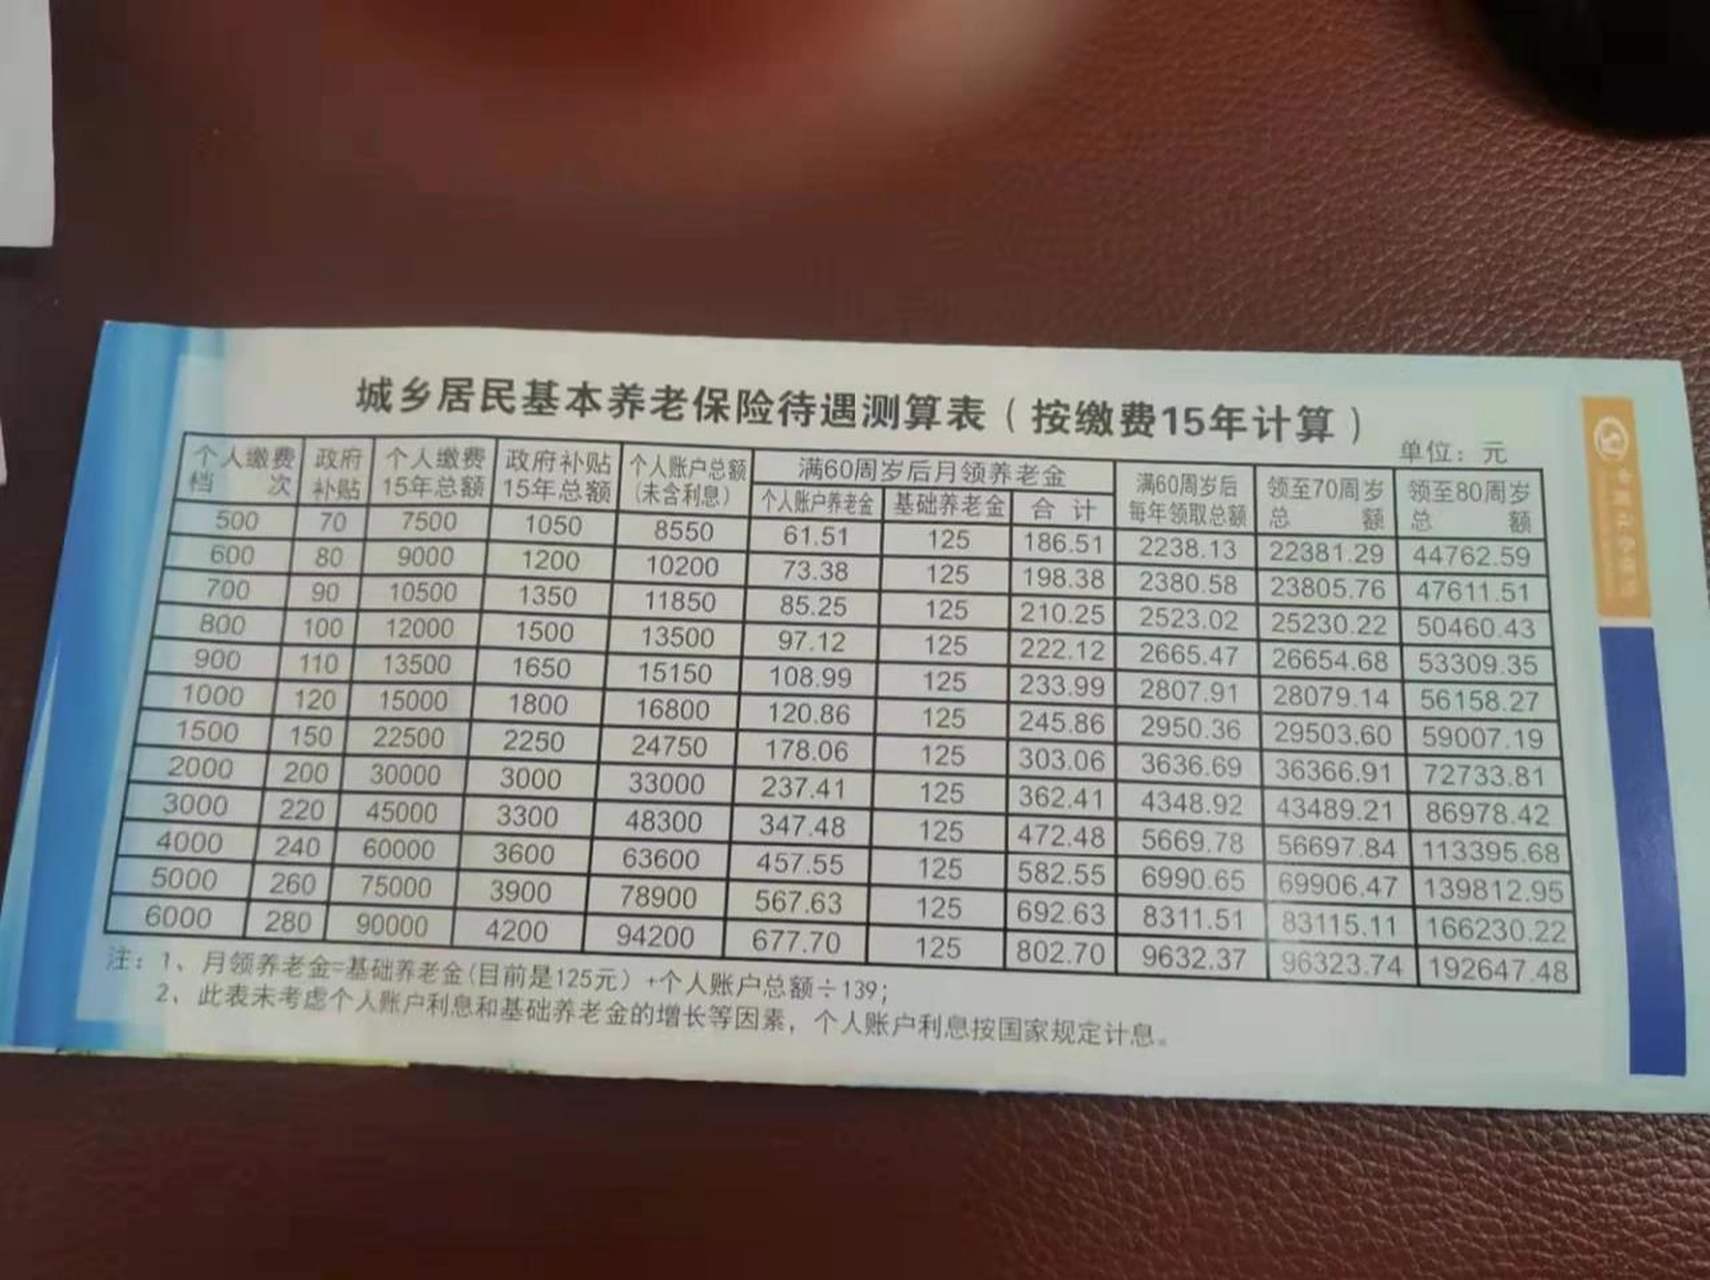 城乡居民基本养老保险待遇测算表（按缴费15年计算）
单位：元
个人缴费档次 政府补贴 个人缴费15年总额 政府补贴15年总额 个人账户总额(未含利息) 满60周岁后月领养老金 满60周岁后每年领取总额 领至70周岁总额 领至80周岁总额
个人账户养老金 基础养老金 合计
500 70 7500 1050 8550 61.51 125 186.51 2238.13 22381.29 44762.59
600 80 9000 1200 10200 73.38 125 198.38 2380.58 23805.76 47611.51
700 90 10500 1350 11850 85.25 125 210.25 2523.02 25230.22 50460.43
800 100 12000 1500 13500 97.12 125 222.12 2665.47 26654.68 53309.35
900 110 13500 1650 15150 108.99 125 233.99 2807.91 28079.14 56158.27
1000 120 15000 1800 16800 120.86 125 245.86 2950.36 29503.60 59007.19
1500 150 22500 2250 24750 178.06 125 303.06 3636.69 36366.91 72733.81
2000 200 30000 3000 33000 237.41 125 362.41 4348.92 43489.21 86978.42
3000 220 45000 3300 48300 347.48 125 472.48 5669.78 56697.84 113395.68
4000 240 60000 3600 63600 457.55 125 582.55 6990.65 69906.47 139812.95
5000 260 75000 3900 78900 567.63 125 692.63 8311.51 83115.11 166230.22
6000 280 90000 4200 94200 677.70 125 802.70 9632.37 96323.74 192647.48
注：1、月领养老金=基础养老金(目前是125元）+个人账户总额÷139；
2、此表未考虑个人账户利息和基础养老金的增长等因素，个人账户利息按国家规定计息。